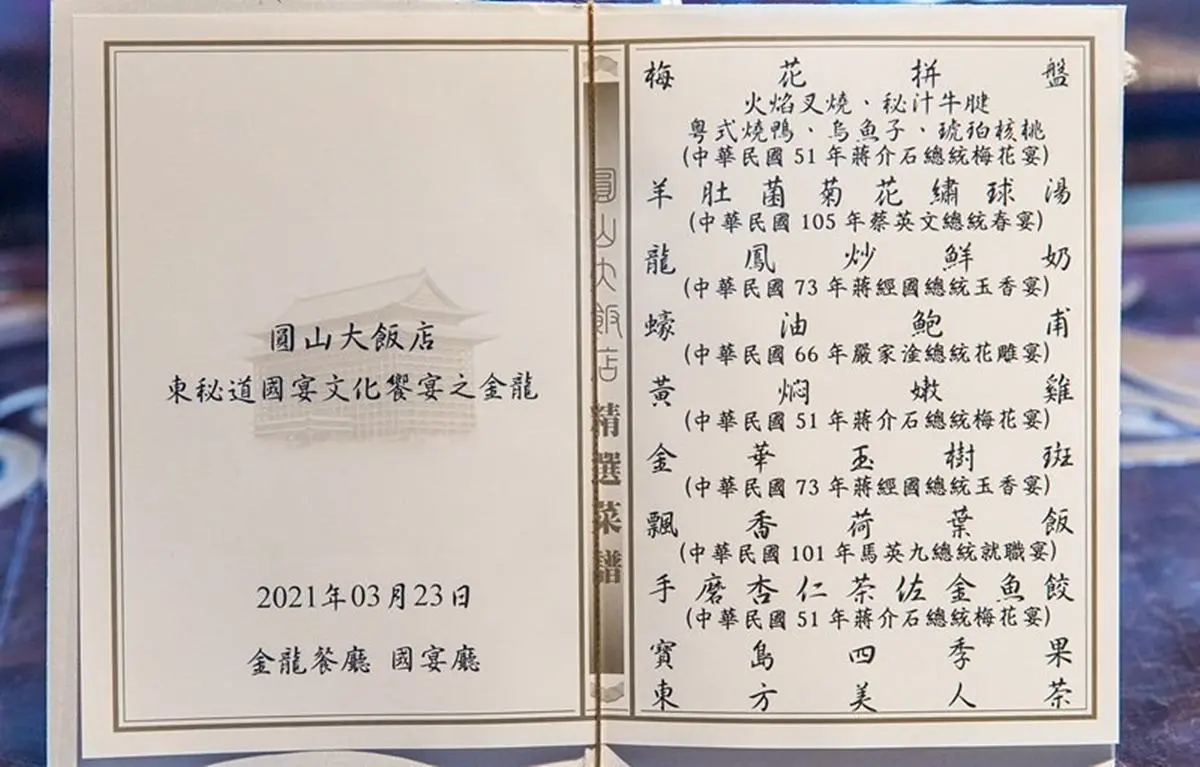 圓山大飯店
東秘道國宴文化饗宴之金龍
2021年03月23日
金龍餐廳 國宴廳
圓山大飯店 精選菜譜
梅花拼盤
火焰叉燒、秘汁牛腱
粵式燒鴨、烏魚子、琥珀核桃
(中華民國 51 年蔣介石總統梅花宴)
羊肚菌菊花繡球湯
(中華民國 105 年蔡英文總統春宴)
龍鳳炒鮮奶
(中華民國 73 年蔣經國總統玉香宴)
蠔油鮑甫
(中華民國 66 年嚴家淦總統花雕宴)
黃焖嫩雞
(中華民國 51 年蔣介石總統梅花宴)
金華玉樹斑
(中華民國 73 年蔣經國總統玉香宴)
飄香荷葉飯
(中華民國 101 年馬英九總統就職宴)
手磨杏仁茶佐金魚餃
(中華民國 51 年蔣介石總統梅花宴)
寶島四季果
東方美人茶